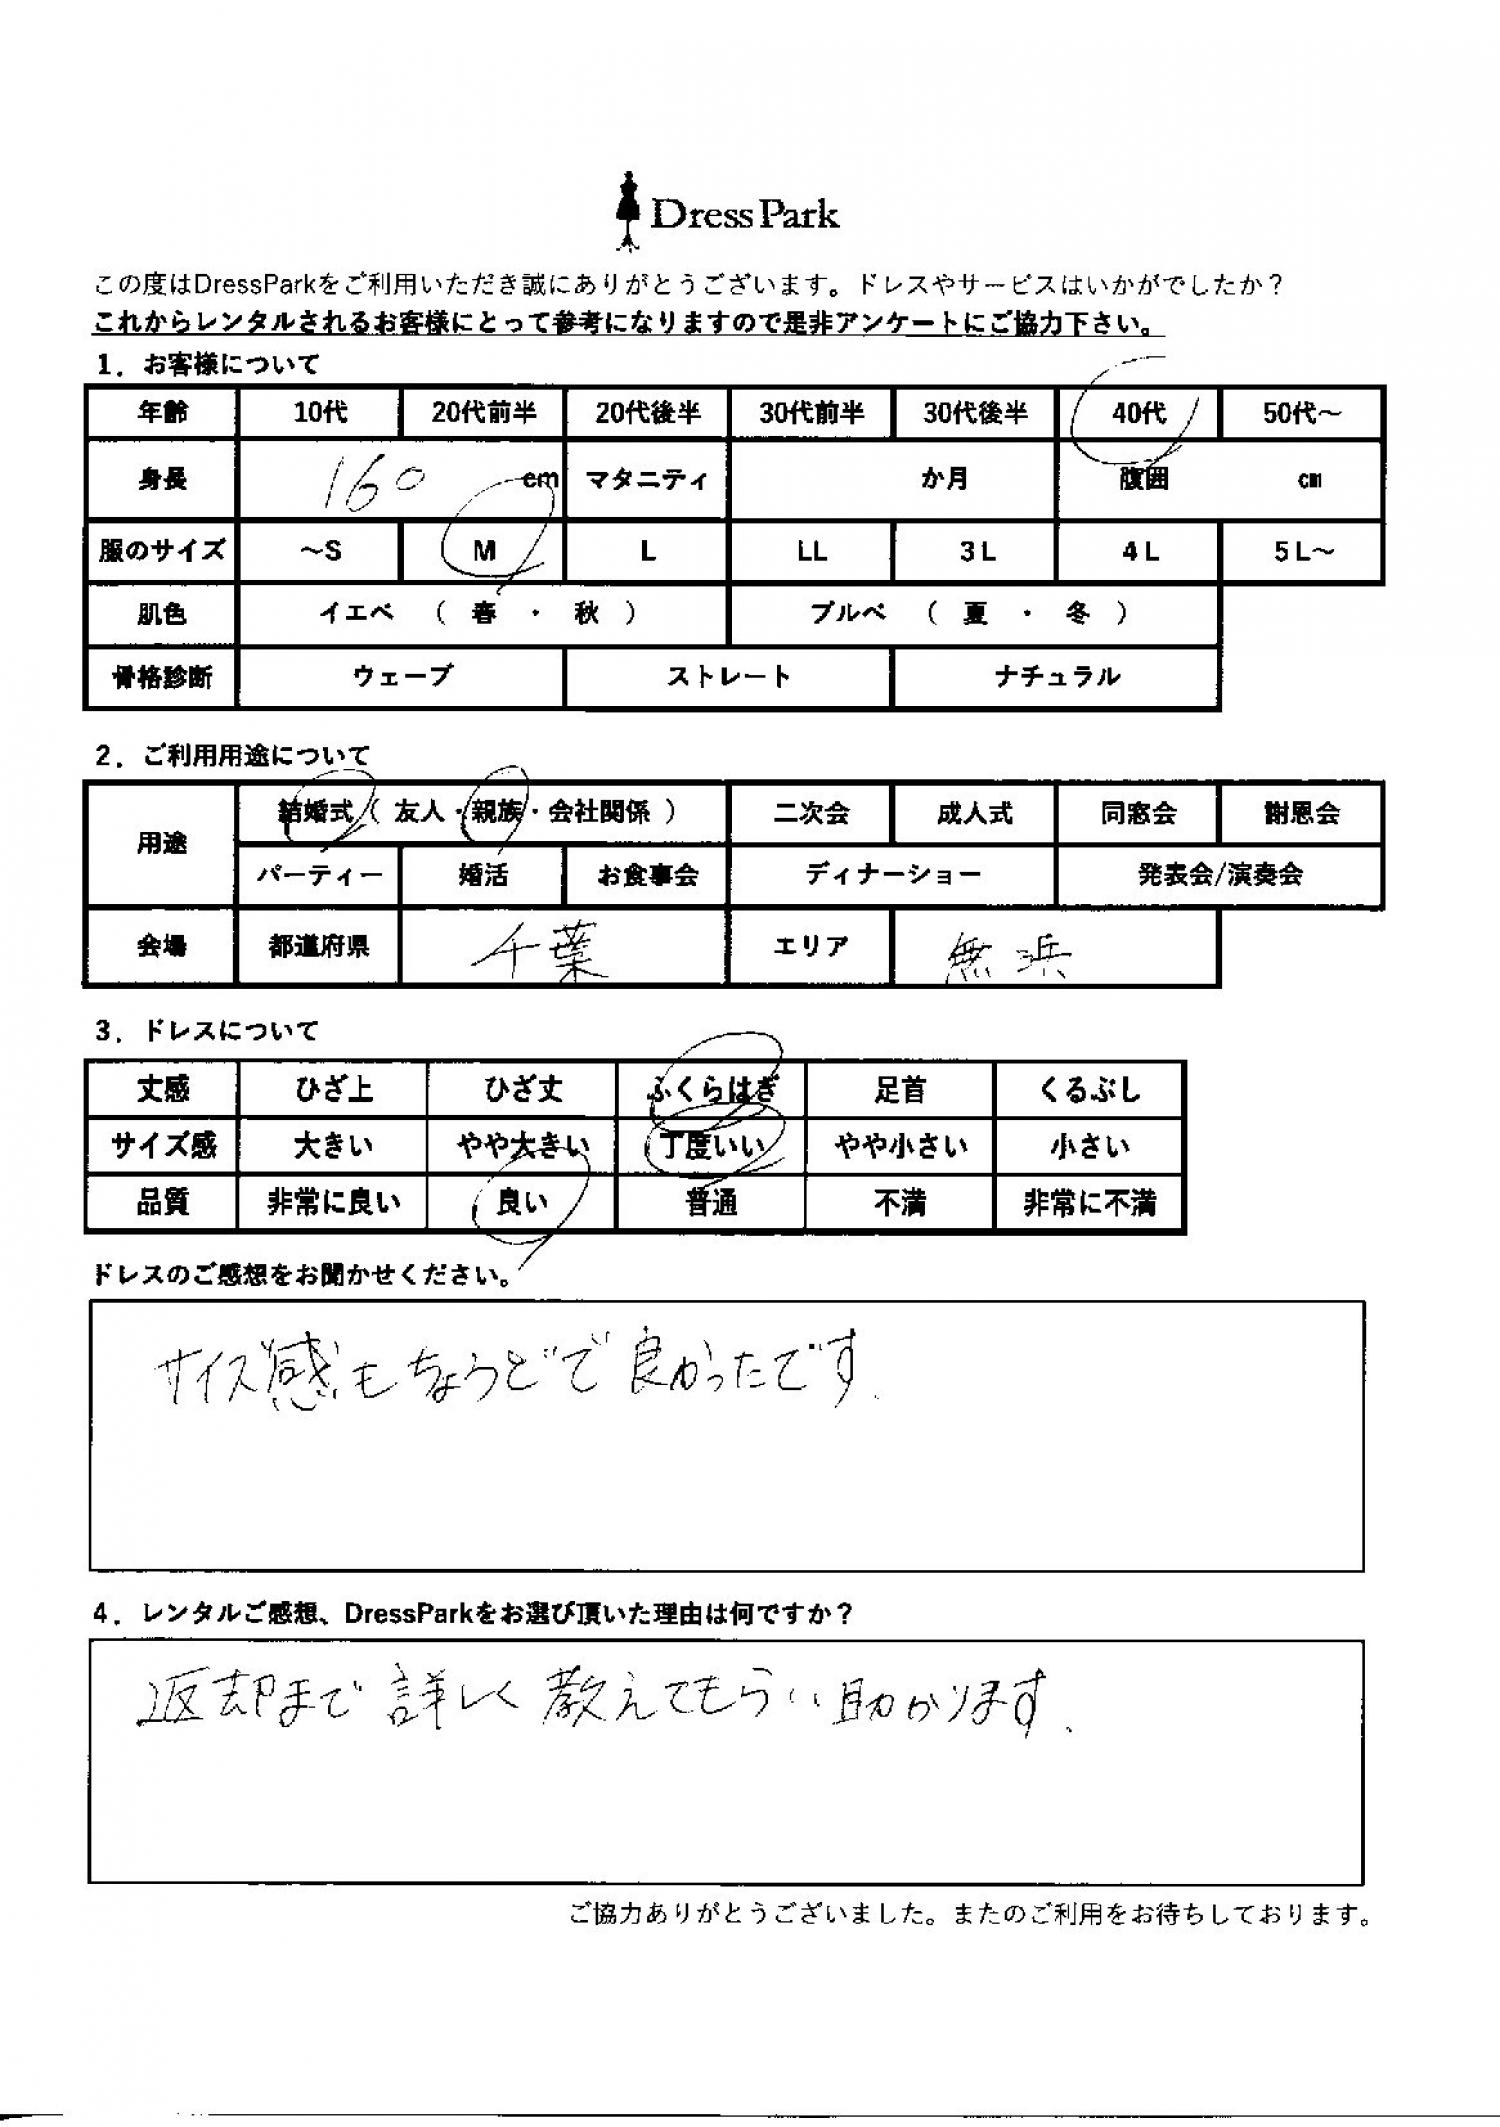 Dress Park
この度はDressParkをご利用いただき誠にありがとうございます。ドレスやサービスはいかがでしたか？
これからレンタルされるお客様にとって参考になりますので是非アンケートにご協力下さい。
1．お客様について
年齢 10代 20代前半 20代後半 30代前半 30代後半 40代 50代～
身長 160 cm マタニティ か月 腹囲 cm
服のサイズ ～S M L LL 3L 4L 5L～
肌色 イエベ （ 春 ・ 秋 ） ブルベ （ 夏 ・ 冬 ）
骨格診断 ウェーブ ストレート ナチュラル
2．ご利用用途について
用途 結婚式（ 友人・親族・会社関係 ） 二次会 成人式 同窓会 謝恩会
パーティー 婚活 お食事会 ディナーショー 発表会/演奏会
会場 都道府県 千葉 エリア 浜
3．ドレスについて
丈感 ひざ上 ひざ丈 ふくらはぎ 足首 くるぶし
サイズ感 大きい やや大きい 丁度いい やや小さい 小さい
品質 非常に良い 良い 普通 不満 非常に不満
ドレスのご感想をお聞かせください。
サイズ感もちょうどで良かったです.
4．レンタルご感想、DressParkをお選び頂いた理由は何ですか？
返却まで詳しく教えてもらい助かります.
ご協力ありがとうございました。またのご利用をお待ちしております。